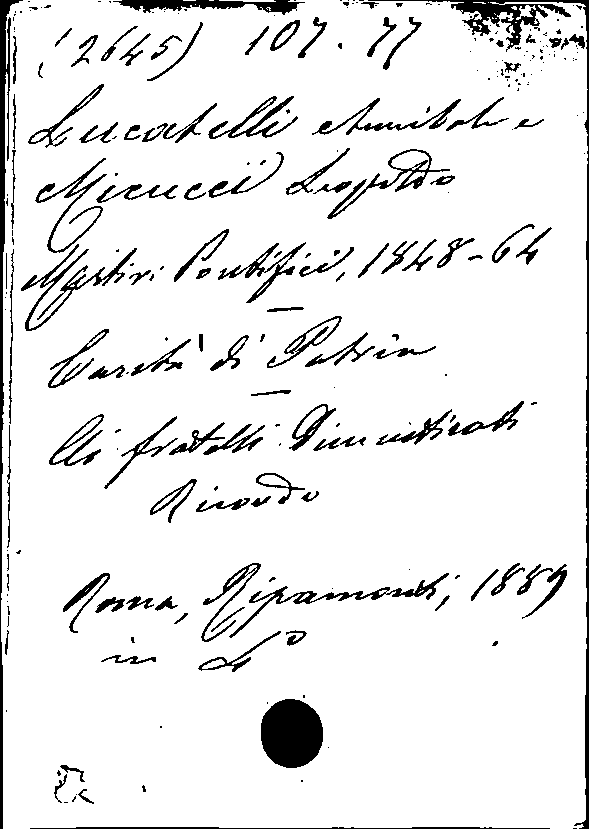 (2645) 107.77
Lucatelli Annibale e
Micucci Leopoldo
Martiri Pontifici, 1848-64
—
Carità di Patria
—
Ai fratelli Dimenticati
Ricordo
Roma, Ripamonti, 1889
in 4°